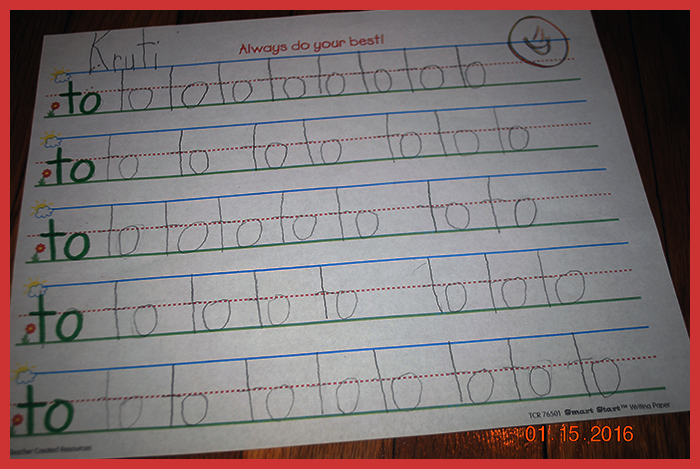 Kruti
Always do your best!
to to to to to to to to to
to to to to to to to to
to to to to to to to to
to to to to to to to to
to to to to to to to to to
TCR 76501 Smart Start™ Writing Paper
Teacher Created Resources
01.15.2016